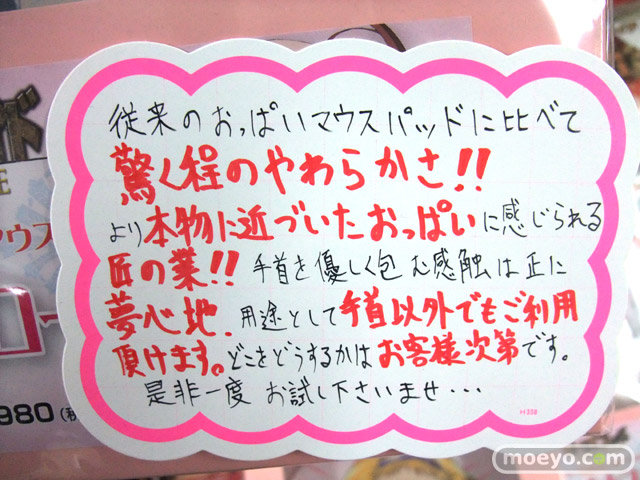 従来のおっぱいマウスパッドに比べて
驚く程のやわらかさ!!
より本物に近づいたおっぱいに感じられる
匠の業!! 手首を優しく包む感触は正に
夢心地. 用途として手首以外でもご利用
頂けます。どこをどうするかはお客様次第です。
是非一度 お試し下さいませ・・・
H338
ウス
ロー
980 (税
moeyo.com